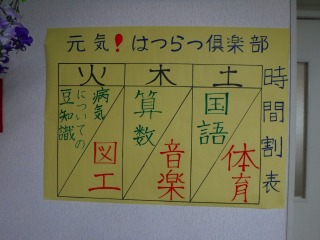 元気!はつらつ倶楽部
時間割表
火 木 土
病気
についての
豆知識
図工
算数
音楽
国語
体育